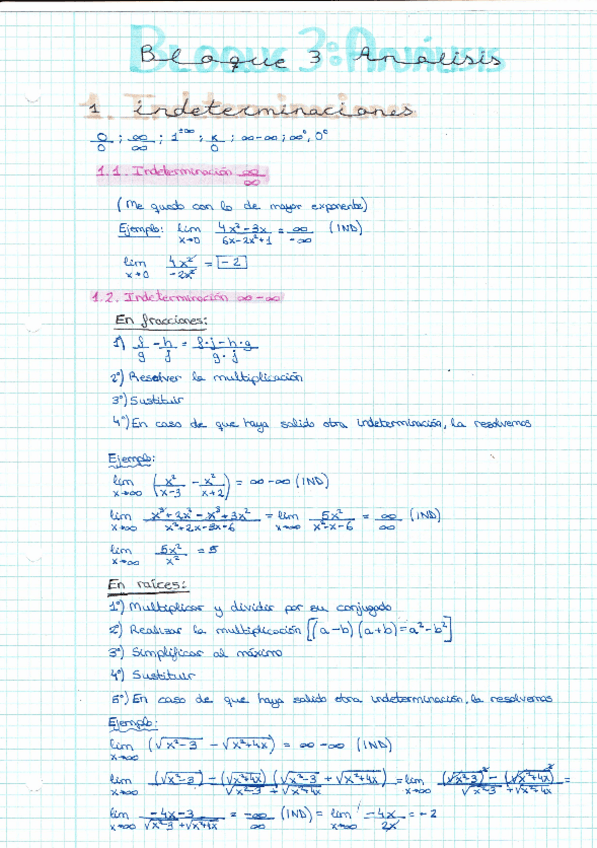 Bloque 3: Análisis
1. indeterminaciones
0/0 ; ∞/∞ ; 1^±∞ ; k/0 ; ∞-∞ ; ∞⁰, 0⁰
1.1. Indeterminación ∞/∞
(Me quedo con lo de mayor exponente)
Ejemplo: lim x→0 (4x²-3x)/(6x-2x²+1) = ∞/-∞ (IND)
lim x→0 4x²/-2x² = -2
1.2. Indeterminación ∞-∞
En fracciones:
1º) f/g - h/j = (f·j-h·g)/(g·j)
2º) Resolver la multiplicación
3º) Sustituir
4º) En caso de que haya salido otra indeterminación, la resolvemos
Ejemplo:
lim x→∞ (x²/(x-3) - x²/(x+2)) = ∞-∞ (IND)
lim x→∞ (x³+2x²-x³+3x²)/(x²+2x-3x-6) = lim x→∞ 5x²/(x²-x-6) = ∞/∞ (IND)
lim x→∞ 5x²/x² = 5
En raíces:
1º) Multiplicar y dividir por su conjugado
2º) Realizar la multiplicación [(a-b)(a+b)=a²-b²]
3º) Simplificar al máximo
4º) Sustituir
5º) En caso de que haya salido otra indeterminación, la resolvemos
Ejemplo:
lim x→∞ (√x²-3 - √x²+4x) = ∞-∞ (IND)
lim x→∞ (√x²-3) - (√x²+4x) (√x²-3 + √x²+4x) / (√x²-3 + √x²+4x) = lim x→∞ ((√x²-3)² - (√x²+4x)²) / (√x²-3 + √x²+4x) =
lim x→∞ (-4x-3)/(√x²-3 + √x²+4x) = -∞/∞ (IND) = lim x→∞ -4x/2x = -2